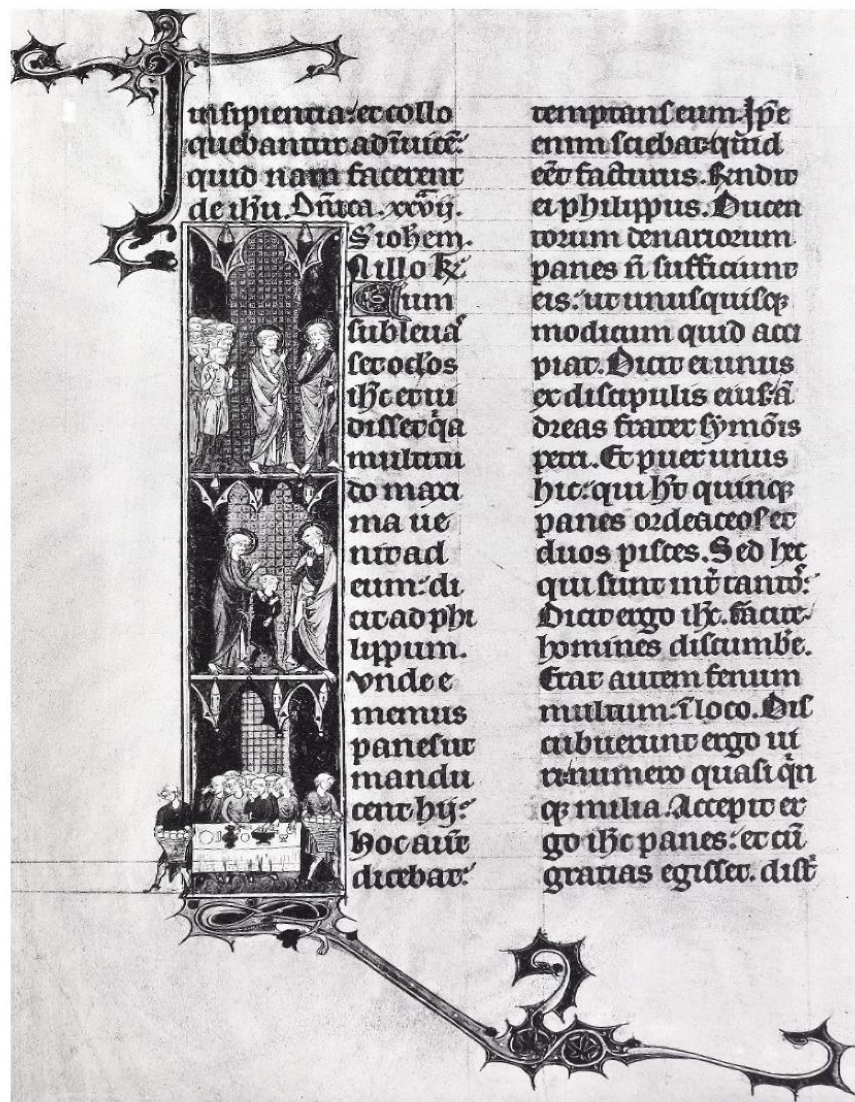 in sipientia: et collo
quebantur adĩuicẽ:
quid nam facerent
de ihũ. Dñica. xxvij.
S ioħem.
N illo t̄.
Cum
subleuaſ
set oclos
ihc et ui
disset q̃a
multitu
do maxi
ma ue
nit ad
eum: di
cit ad phi
lippum.
vnde e
memus
panes ut
mandu
cent hij:
hoc aũt
dicebat:
temptans eum. Ip̃e
enim sciebat: quid
eẽt facturus. Rñdit
ei philippus. Ducen
torum denariorum
panes ñ sufficiunt
eis: ut unusquisq;
modicum quid acci
piat. Dicit ei unus
ex discipulis eius: ã
dreas frater symõis
petri. Et puer unus
hic: qui ht quinq;
panes ordeaceos et
duos pisces. Sed hec
qui sunt int̃ tantoſ:
Dicit ergo ihc. facite
homines discumbe̾.
Erat autem fenum
multum: ĩ loco. Dis
cubuerunt ergo ui
ri: numero quasi qñ
q; milia. Accepit er
go ihc panes: et cũ
gratias egisset. dist̾